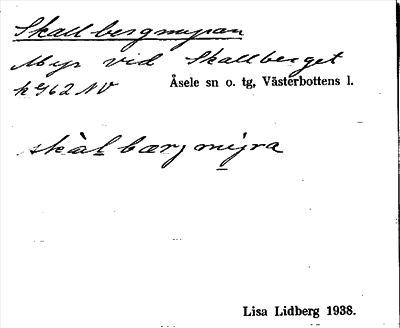 Skallbergmyran
Myr vid Skallberget
k 962 NV Åsele sn o. tg, Västerbottens l.
skàl bærj mỳra
Lisa Lidberg 1938.